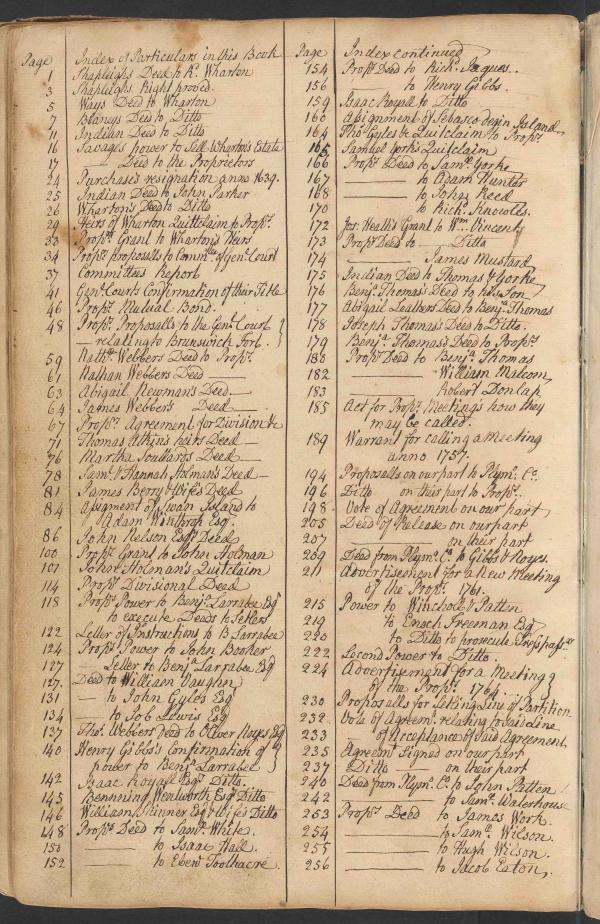 Page Index of Particulars in this Book
1 Shapleighs Deed to Rd. Wharton
3 Shapleighs Right proved.
5 Ways Deed to Wharton
7 Blaneys Deed to Ditto
11 Indian Deed to Ditto
16 Savages power to Sell Wharton's Estate
17 —— Deed to the Proprietors
24 Purchase's resignation anno 1639.
25 Indian Deed to John Parker
26 Wharton's Deed to Ditto
29 Heirs of Wharton Quittclaim to Propts.
33 Proprs. Grant to Wharton's Heirs
34 Proprs. proposals to Commtee of Genl. Court
37 Committees Report
41 Genl. Courts Confirmation of their Title
46 Proprs. Mutual Bond.
48 Proprs. Proposalls to the Genl. Court
— relating to Brunswick Fort.
59 Nathll. Webbers Deed to Proprs.
61 Nathan Webbers Deed ——
63 Abigail Newman's Deed —
64 James Webbers Deed —
67 Proprs. Agreement for Division &c
71 Thomas Atkin's heirs Deed —
76 Martha Soullards Deed —
78 Saml. & Hannah Holman's Deed —
81 James Berry & Wife's Deed
84 Assignment of Swan Island to
Adam Winthrop Esqr.
86 John Nelson Esqrs. Deed
100 Proprs. Grant to John Holman
101 John Holman's Quitclaim
114 Proprs. Divisional Deed
118 Proprs. Power to Benja. Larrabee Esqr
to execute Deeds to Settlers
122 Letter of Instructions to B Larrabee
124 Proprs. Power to John Booker
127 — Letter to Benja. Larrabee Esqr
127. Deed to William Vaughn
131 — to John Gyles Esqr
134 — to Job Lewis Esqr
137 Thos. Webbers deed to Oliver Noyes Esqr
140 Henry Gibbs's Confirmation of
power to Benja. Larrabee
142 Isaac Royall Esqrs. Ditto.
145 Bennning Wentworth Esqrs Ditto
146 William Skinner Esqr & Wife's Ditto
148 Proprs. Deed to Saml. White.
150 —— to Isaac Hall.
152 —— to Ebenr. Toothacre.
Page Index continued
154 Proprs. Deed to Richd. Jaques.
156 —— to Henry Gibbs.
159 Isaac Royall to Ditto
160 Assignment of Sebascodegin Island
164 Thos. Gyles &c Quitclaim to Proprs.
165 Samuel York's Quitclaim
166 Proprs. Deed to Saml. Yorke
167 —— to Adam Hunter
168 —— to John Reed
170 —— to Richd. Knowlls.
172 Jos: Heath's Grant to Wm. Vincent
173 Proprs Deed to — Ditto
174 —— James Mustard
175 Indian Deed to Thomas & Yorke
176 Benja. Thomas's Deed to his Son
177 Abigail Leathers Deed to Benja. Thomas
178 Joseph Thomas's Deed to Ditto.
179 Benja. Thomas's Deed to Proprs.
180 Proprs Deed to Benja. Thomas
182 —— William Malcom
183 —— Robert Dunlap
185 Act for Proprs. Meetings how they
may be called.
189 Warrant for calling a Meeting
anno 1757.
194 Proposalls on our part to Plymo. Co.
196 Ditto on their part to Proprs.
198 Vote of Agreement on our part
205 Deed of Release on our part
207 —— on their part
209 Deed from Plymo. Co. to Gibbs & Noyes.
211 Advertisement for a New Meeting
of the Proprs. 1761.
215 Power to Winchole & Patten
219 to Enoch Freeman Esqr
220 to Ditto to prosecute Tresspassers
222 Second Power to Ditto
224 Advertisement for a Meeting
of the Proprs. 1764.
230 Proposalls for Settling Line of Partition
232 Vote of Agreemt. relating to said Line
233 — of Acceptance of Said Agreement.
235 Agreemt. Signed on our part
237 Ditto — on their part
240 Deed from Plymo. Co. to John Patten
242 —— to Saml. Waterhouse
253 Proprs. Deed to James Work.
254 —— to Saml. Wilson.
255 —— to Hugh Wilson.
256 —— to Jacob Eaton.